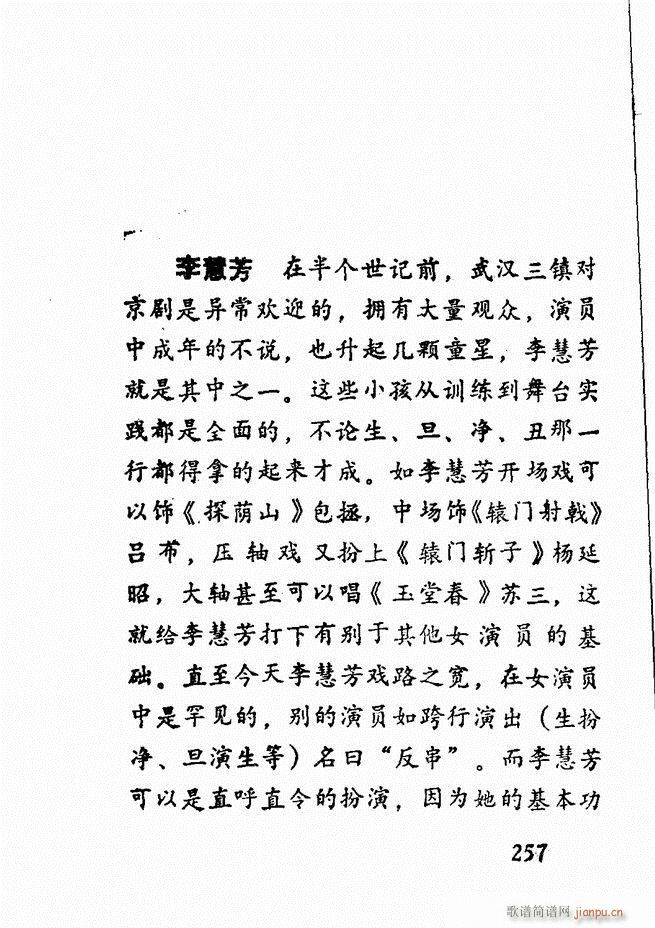 李慧芳 在半个世记前，武汉三镇对
京剧是异常欢迎的，拥有大量观众，演员
中成年的不说，也升起几颗童星，李慧芳
就是其中之一。这些小孩从训练到舞台实
践都是全面的，不论生、旦、净、丑那一
行都得拿的起来才成。如李慧芳开场戏可
以饰《探荫山》包拯，中场饰《辕门射戟》
吕布，压轴戏又扮上《辕门斩子》杨延
昭，大轴甚至可以唱《玉堂春》苏三，这
就给李慧芳打下有别于其他女演员的基
础。直至今天李慧芳戏路之宽，在女演员
中是罕见的，别的演员如跨行演出（生扮
净、旦演生等）名曰“反串”。而李慧芳
可以是直呼直令的扮演，因为她的基本功
257
歌谱简谱网 jianpu.cn